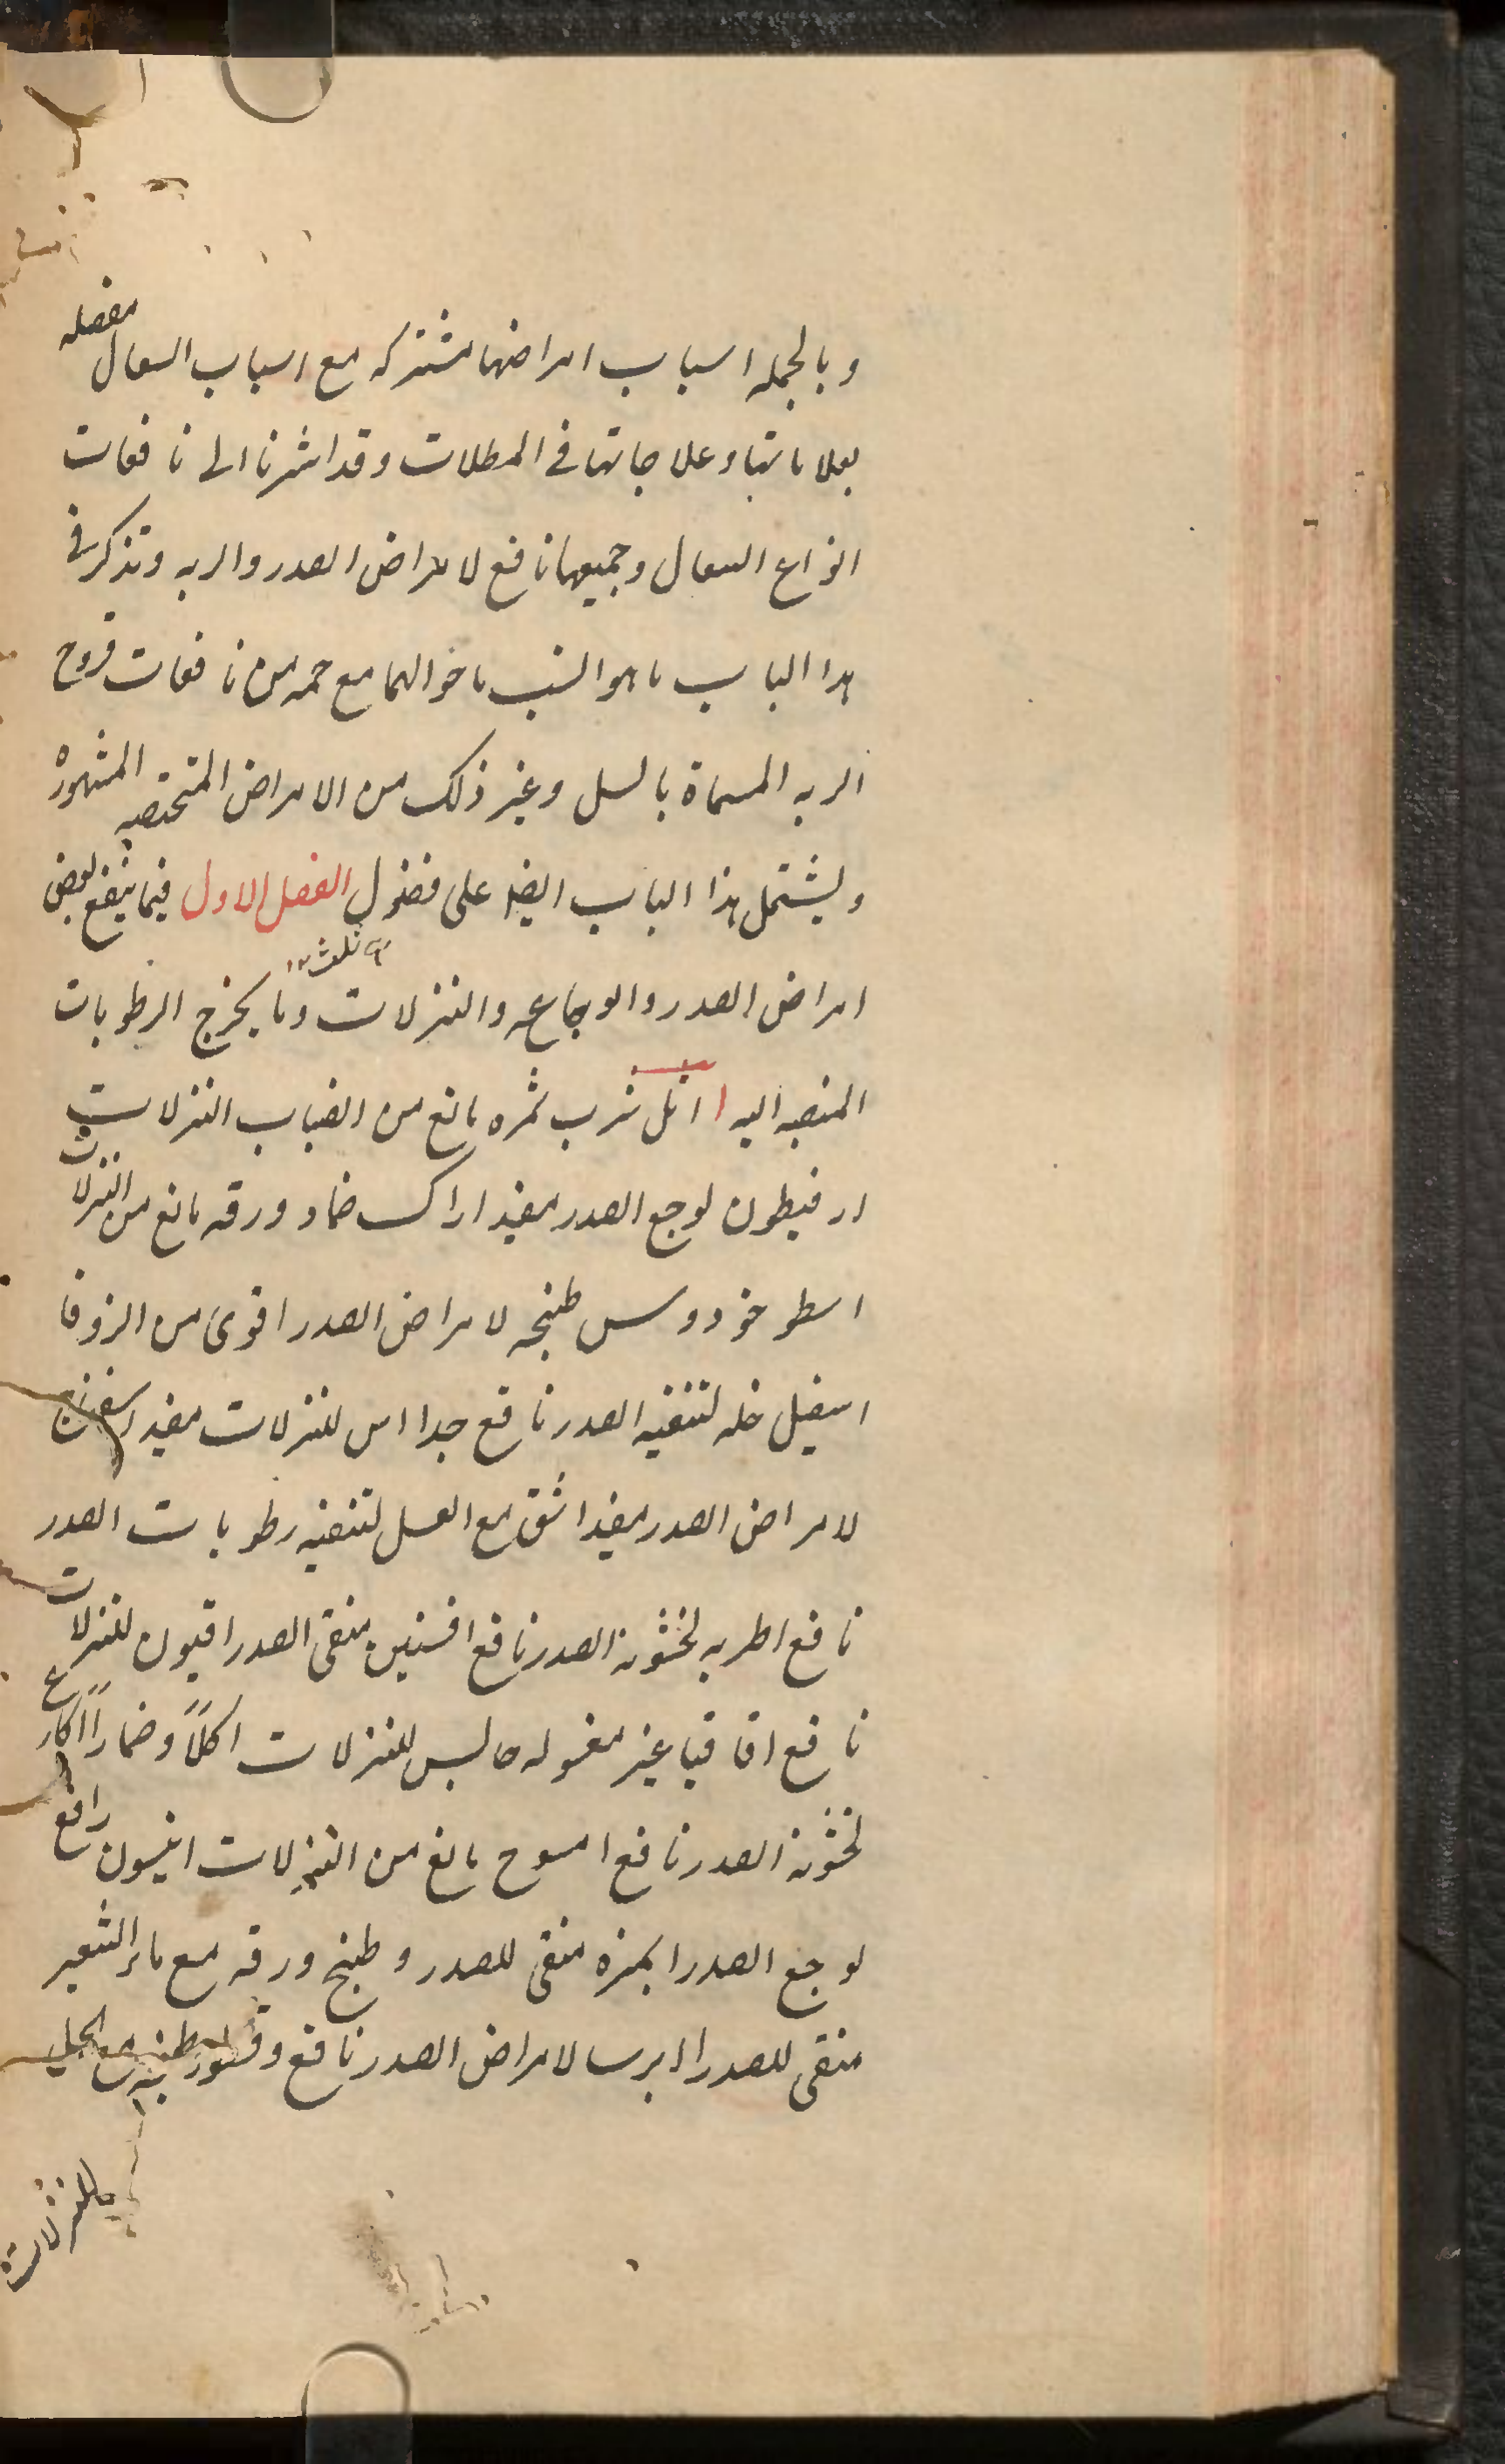 وبالجمله اسباب امراضها مشتركه مع اسباب السعال مفصله
بعلاماتها وعلاجاتها فى المطلات وقد اشرنا الى نافعات
انواع السعال وجميعها نافع لامراض الصدر والريه ونذكر فى
هذا الباب ما هو انسب باحوالهما مع جمله من نافعات قروح
الريه المسماة بالسل وغير ذلك من الامراض المختصه المشهورة
ويشتمل هذا الباب ايضا على فصول الفصل الاول فيما ينفع لبعض
ثلث
امراض الصدر واوجاعه والنزلات وما يخرج الرطوبات
المنصبه اليه اثل شرب ثمره مانع من انصباب النزلات
ارفيطون لوجع الصدر مفيد اراك ضماد ورقه مانع من النزلات
اسطوخودوس طبخه لامراض الصدر اقوى من الزوفا
اسقيل خله لتنقيه الصدر نافع جدا اس للنزلات مفيد اسفناخ
لامراض الصدر مفيد اشق مع العسل لتنقيه رطوبات الصدر
نافع اطريه لخشونة الصدر نافع افسنتين منقى الصدر افيون للنزلات
نافع اقاقيا غير مغسوله حابس للنزلات اكلاً وضماداً اكارع
لخشونة الصدر نافع امسوح مانع من النزلات انيسون رافع
لوجع الصدر انجره منقى للصدر وطبخ ورقه مع ماء الشعير
منقى للصدر ايرسا لامراض الصدر نافع وقطور طبخه مع الخل
للنزلات